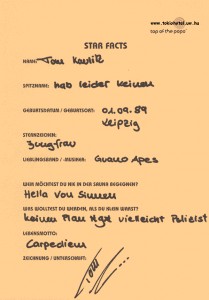 www.tokiohotel.uw.hu
top of the pops
STAR FACTS
NAME: Tom Kaulitz
SPITZNAME: hab leider keinen
GEBURTSDATUM / GEBURTSORT: 01.09.89
Leipzig
STERNZEICHEN:
Jungfrau
LIEBLINGSBAND / MUSIKER: Guano Apes
WEM MÖCHTEST DU NIE IN DER SAUNA BEGEGNEN?
Hella von Sinnen
WAS WOLLTEST DU WERDEN, ALS DU KLEIN WARST?
keinen Plan vielleicht Polizist
LEBENSMOTTO:
Carpediem
ZEICHNUNG / UNTERSCHRIFT:
Tom